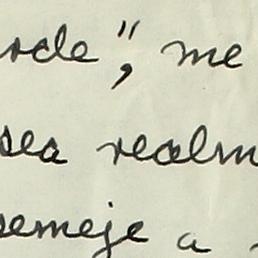 rde", me
sea realm
semeje a